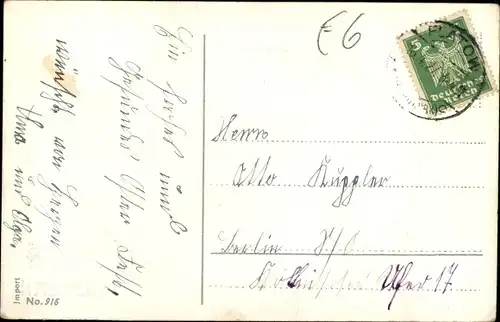 €6
FLATOW
5
DEUTSCHES REICH
Ein frohes und
gesundes Oster Fest,
wünscht von Herzen
und Olga.
Herrn
Otto Kuppler
Berlin S/O
Ufer 17.
Import
No. 916